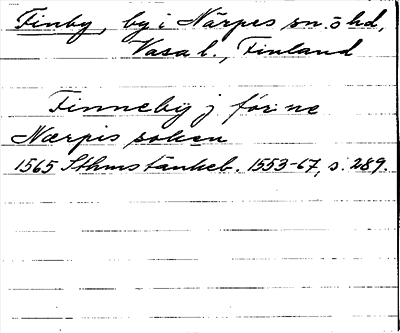 Finby, by i Närpes sn. ö hd,
Vasa l., Finland
Finneby j för:ne
Nærpis soken
1565 Sthms tänkeb. 1553-67, s. 289.